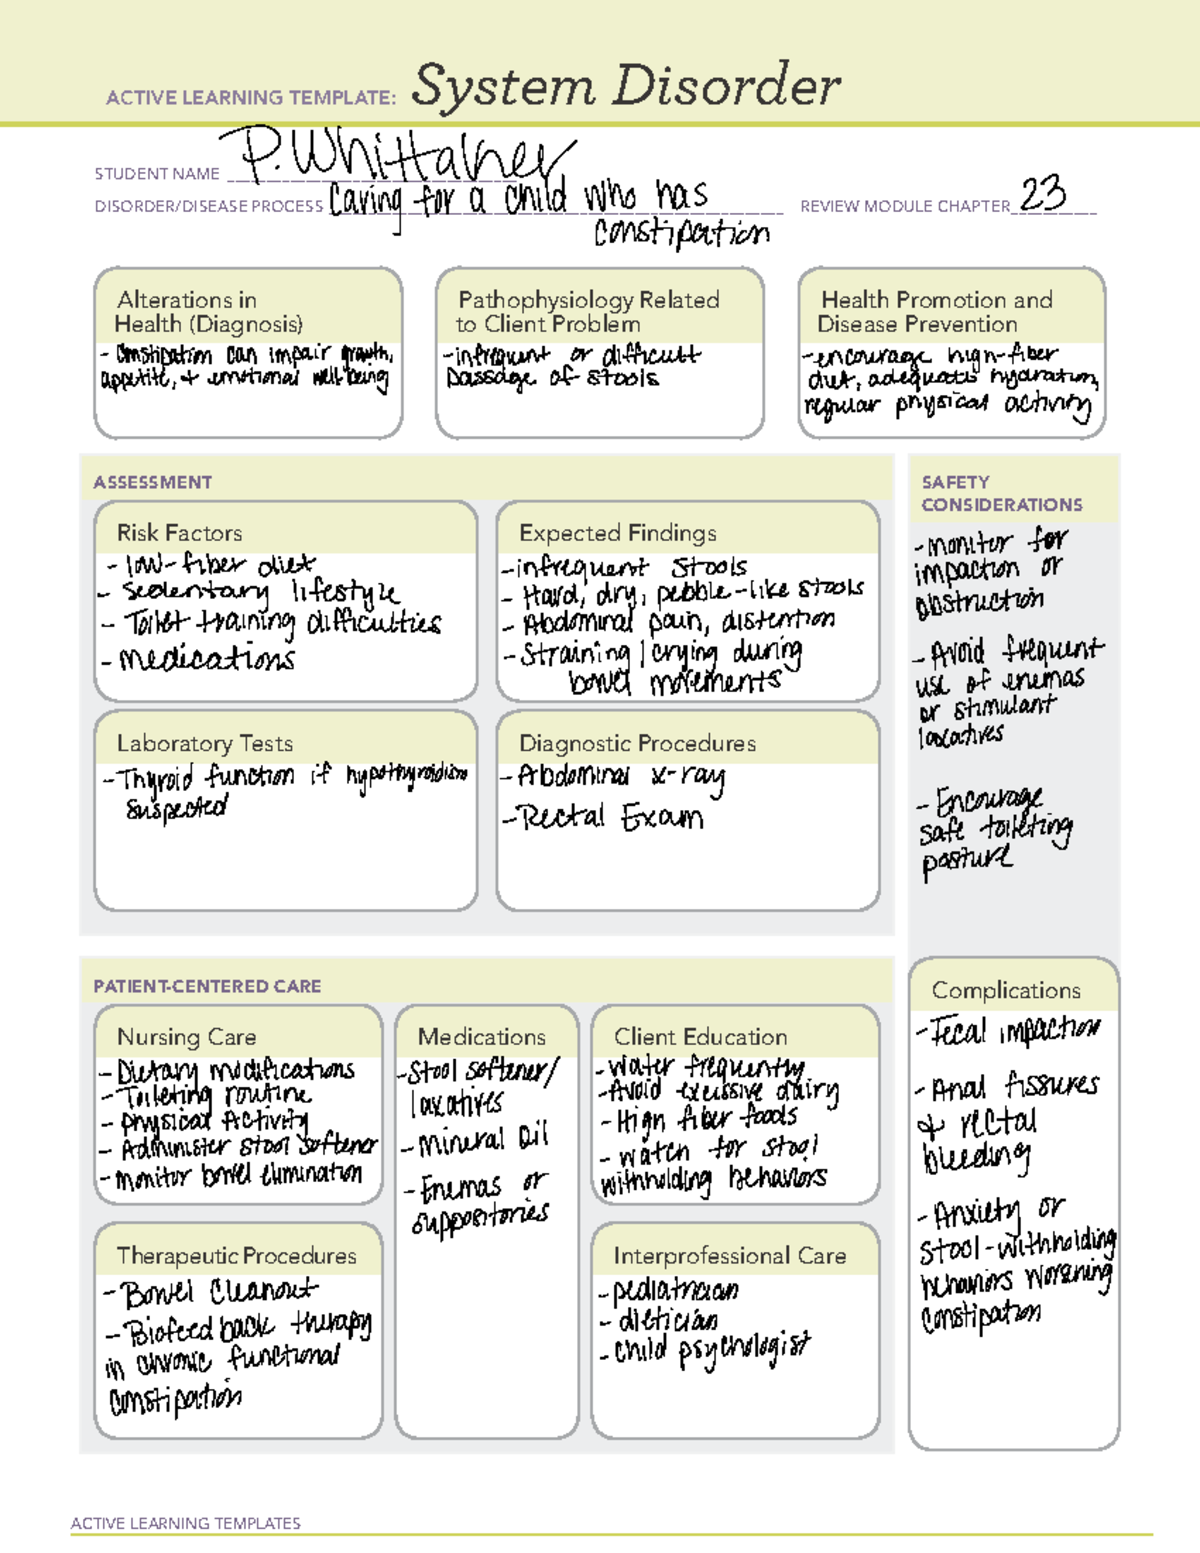 ACTIVE LEARNING TEMPLATE: System Disorder
STUDENT NAME P. Whittaker
DISORDER/DISEASE PROCESS Caring for a child who has
constipation
REVIEW MODULE CHAPTER 23
Alterations in
Health (Diagnosis)
- Constipation can impair growth,
appetite, & emotional well being
Pathophysiology Related
to Client Problem
- infrequent or difficult
passage of stools
Health Promotion and
Disease Prevention
- encourage high-fiber
diet, adequate hydration,
regular physical activity
ASSESSMENT
Risk Factors
- low-fiber diet
- Sedentary lifestyle
- Toilet training difficulties
- Medications
Expected Findings
- infrequent stools
- Hard, dry, pebble-like stools
- Abdominal pain, distention
- Straining/crying during
bowel movements
Laboratory Tests
- Thyroid function if hypothyroidism
suspected
Diagnostic Procedures
- Abdominal x-ray
- Rectal Exam
SAFETY
CONSIDERATIONS
- Monitor for
impaction or
obstruction
- Avoid frequent
use of enemas
or stimulant
laxatives
- Encourage
safe toileting
posture
PATIENT-CENTERED CARE
Nursing Care
- Dietary modifications
- Toileting routine
- Physical Activity
- Administer stool softener
- monitor bowel elimination
Medications
- Stool softener/
laxatives
- Mineral Oil
- Enemas or
suppositories
Client Education
- Water frequently
- Avoid excessive dairy
- High fiber foods
- watch for stool
withholding behaviors
Therapeutic Procedures
- Bowel Cleanout
- Biofeedback therapy
in chronic functional
constipation
Interprofessional Care
- pediatrician
- dietician
- child psychologist
Complications
- Fecal impaction
- Anal fissures
& rectal
bleeding
- Anxiety or
stool-withholding
behaviors worsening
constipation
ACTIVE LEARNING TEMPLATES